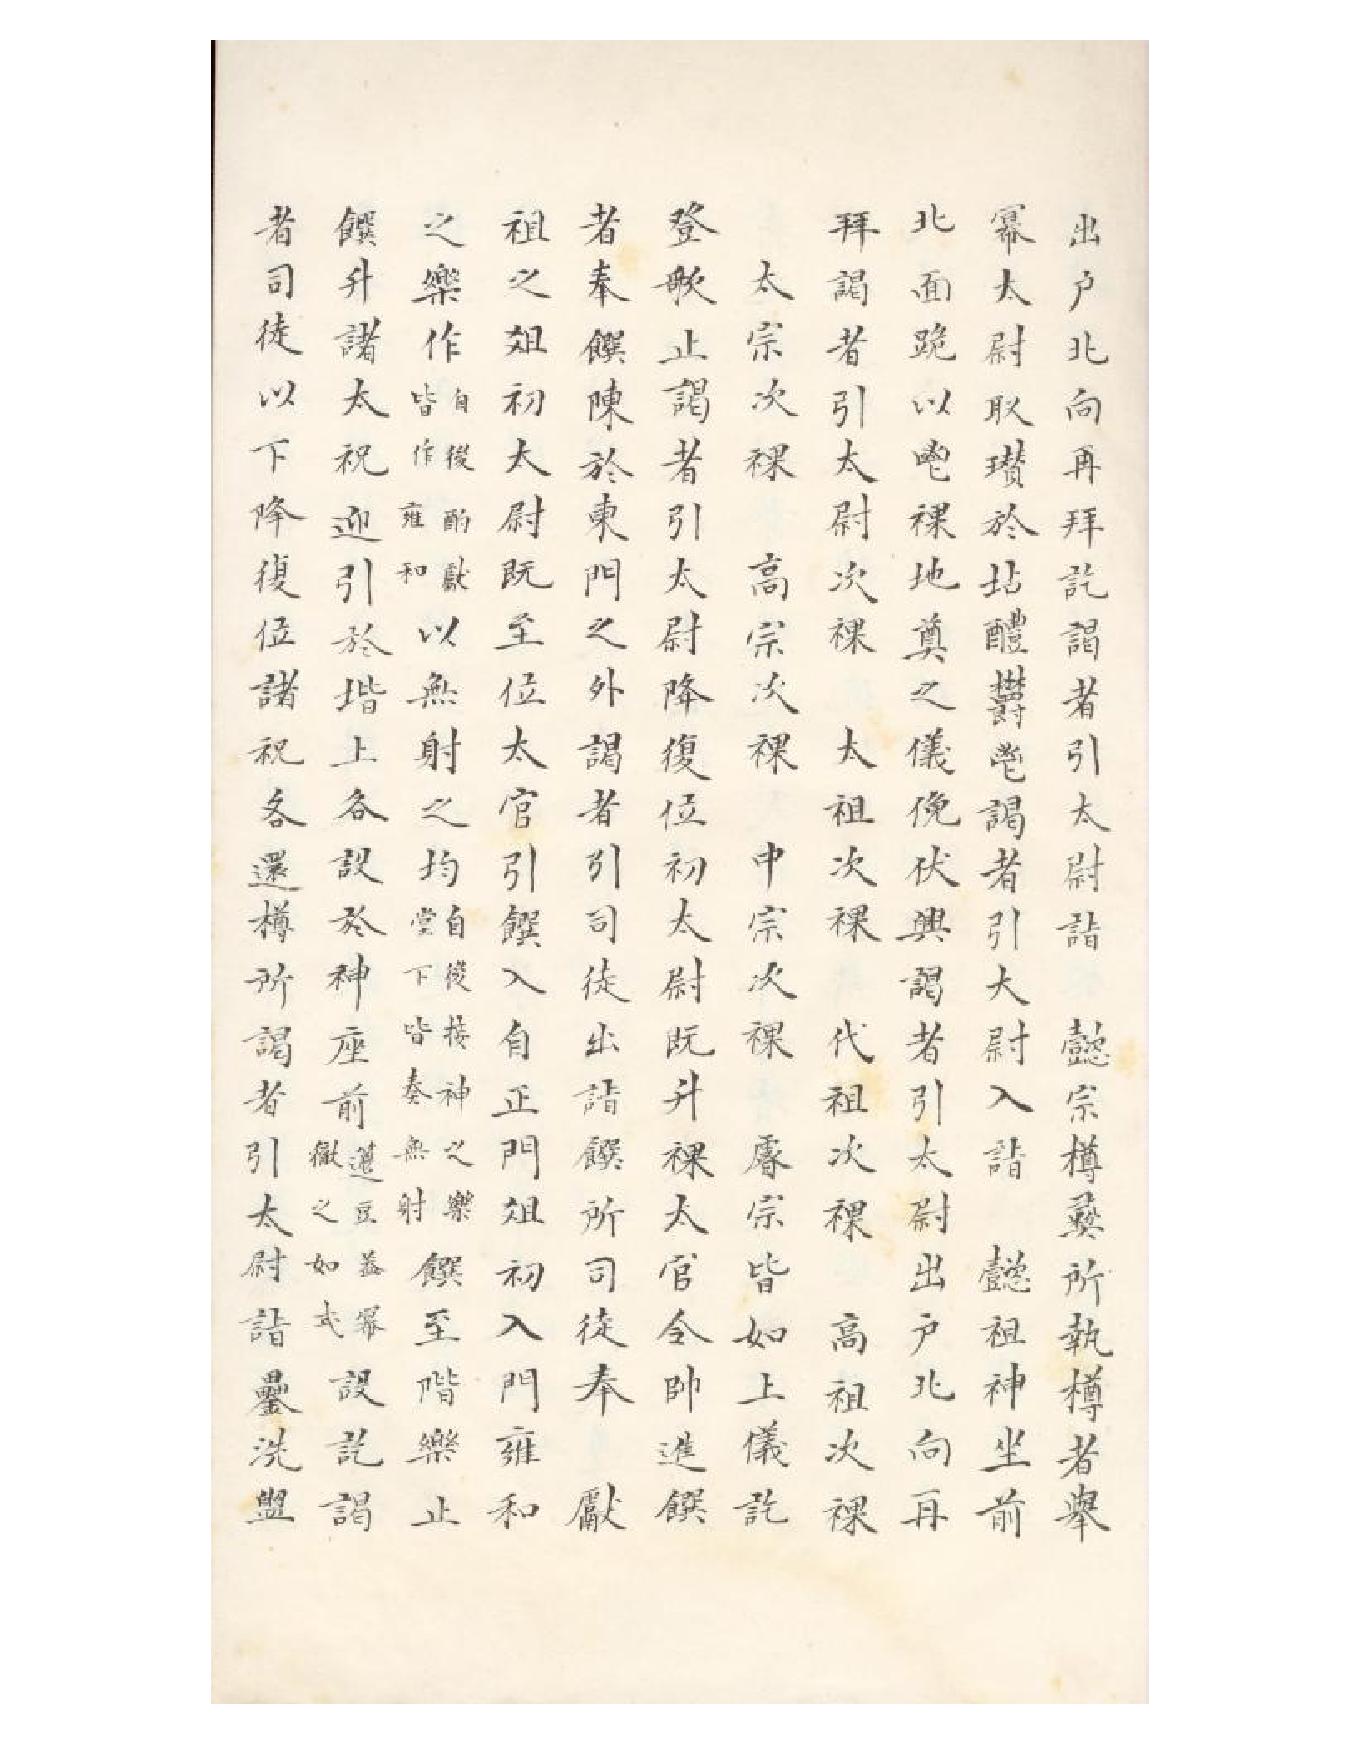 出户北向再拜訖謁者引太尉詣　懿宗樽彛所執樽者舉
冪太尉取瓚於坫醴鬱鬯謁者引大尉入詣　懿祖神坐前
北面跪以鬯祼地奠之儀俛伏興謁者引太尉出户北向再
拜謁者引太尉次祼　太祖次祼　代祖次祼　高祖次祼
太宗次祼　高宗次祼　中宗次祼　睿宗皆如上儀訖
登歌止謁者引太尉降復位初太尉既升祼太官令帥進饌
者奉饌陳於東門之外謁者引司徒出詣饌所司徒奉　獻
祖之俎初太尉既至位太官引饌入自正門俎初入門雍和
之樂作自後酌獻皆作雍和以無射之均自後接神之樂堂下皆奏無射饌至階樂止
饌升諸太祝迎引於堦上各設於神座前籩豆葢冪徹之如式設訖謁
者司徒以下降復位諸祝各還樽所謁者引太尉詣罍洗盥